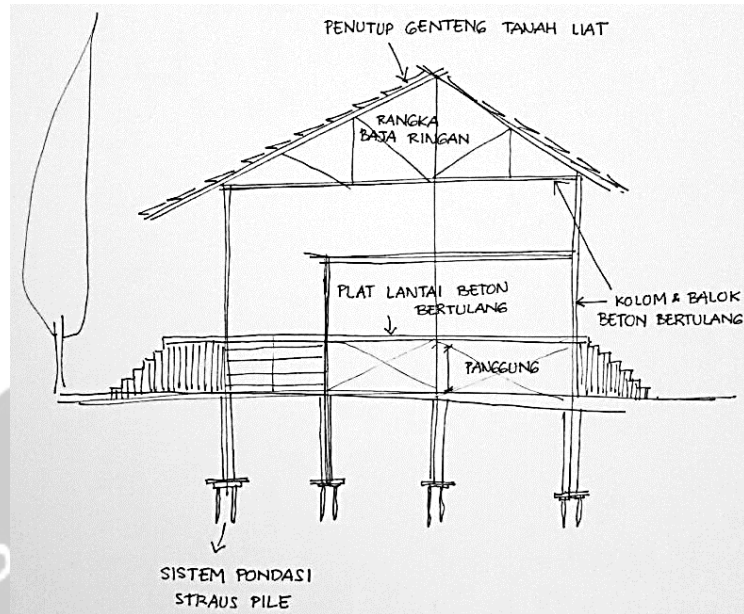 PENUTUP GENTENG TANAH LIAT
RANGKA
BAJA RINGAN
PLAT LANTAI BETON
BERTULANG
KOLOM & BALOK
BETON BERTULANG
PANGGUNG
SISTEM PONDASI
STRAUS PILE